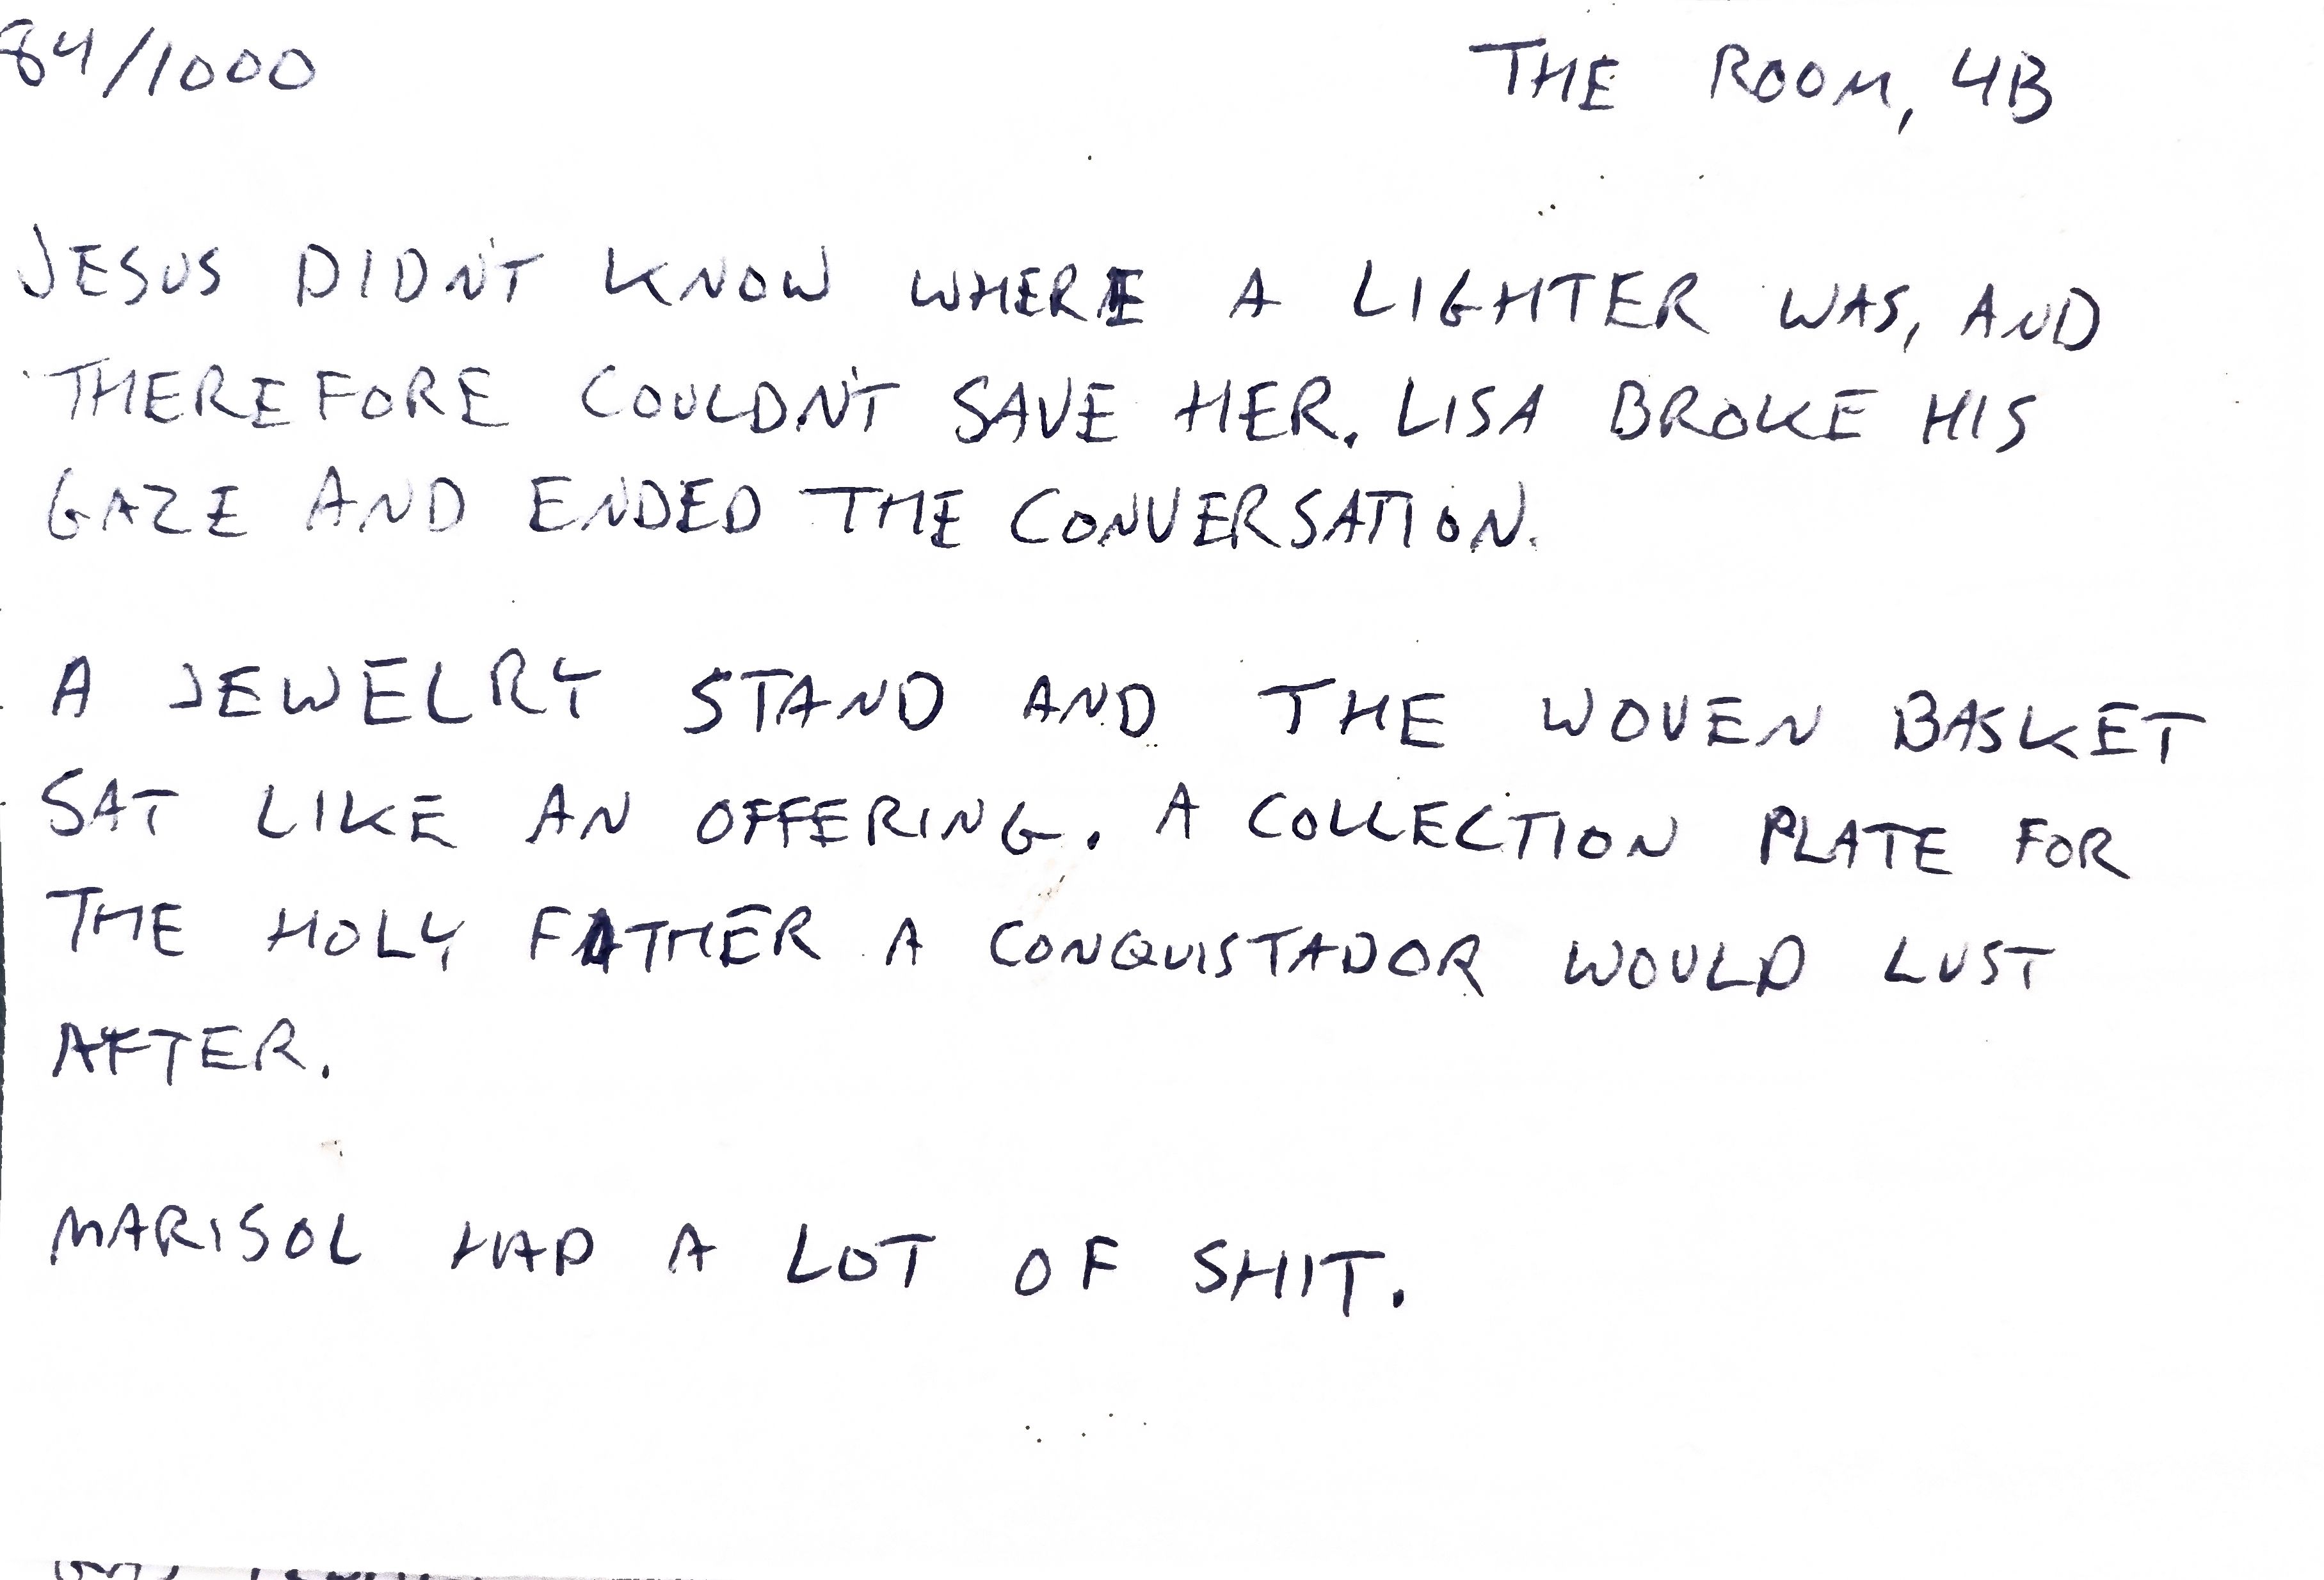 84/1000
THE ROOM, 4B
JESUS DIDN'T KNOW WHERE A LIGHTER WAS, AND
THEREFORE COULDN'T SAVE HER. LISA BROKE HIS
GAZE AND ENDED THE CONVERSATION.
A JEWELRY STAND AND THE WOVEN BASKET
SAT LIKE AN OFFERING. A COLLECTION PLATE FOR
THE HOLY FATHER A CONQUISTADOR WOULD LUST
AFTER.
MARISOL HAD A LOT OF SHIT.